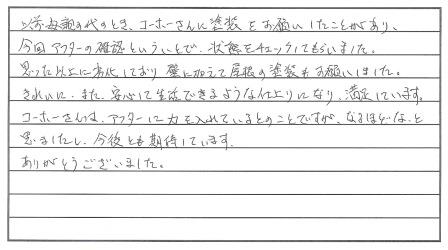 以前母親の代のとき、コーホーさんに塗装をお願いしたことがあり、
今回アフターの確認ということで、状態をチェックしてもらいました。
思った以上に劣化しており壁に加えて屋根の塗装もお願いしました。
きれいに、また、安心して生活できるような仕上りになり、満足しています。
コーホーさんは、アフターに力を入れているとのことですが、なるほどな、と
思いましたし、今後とも期待しています。
ありがとうございました。